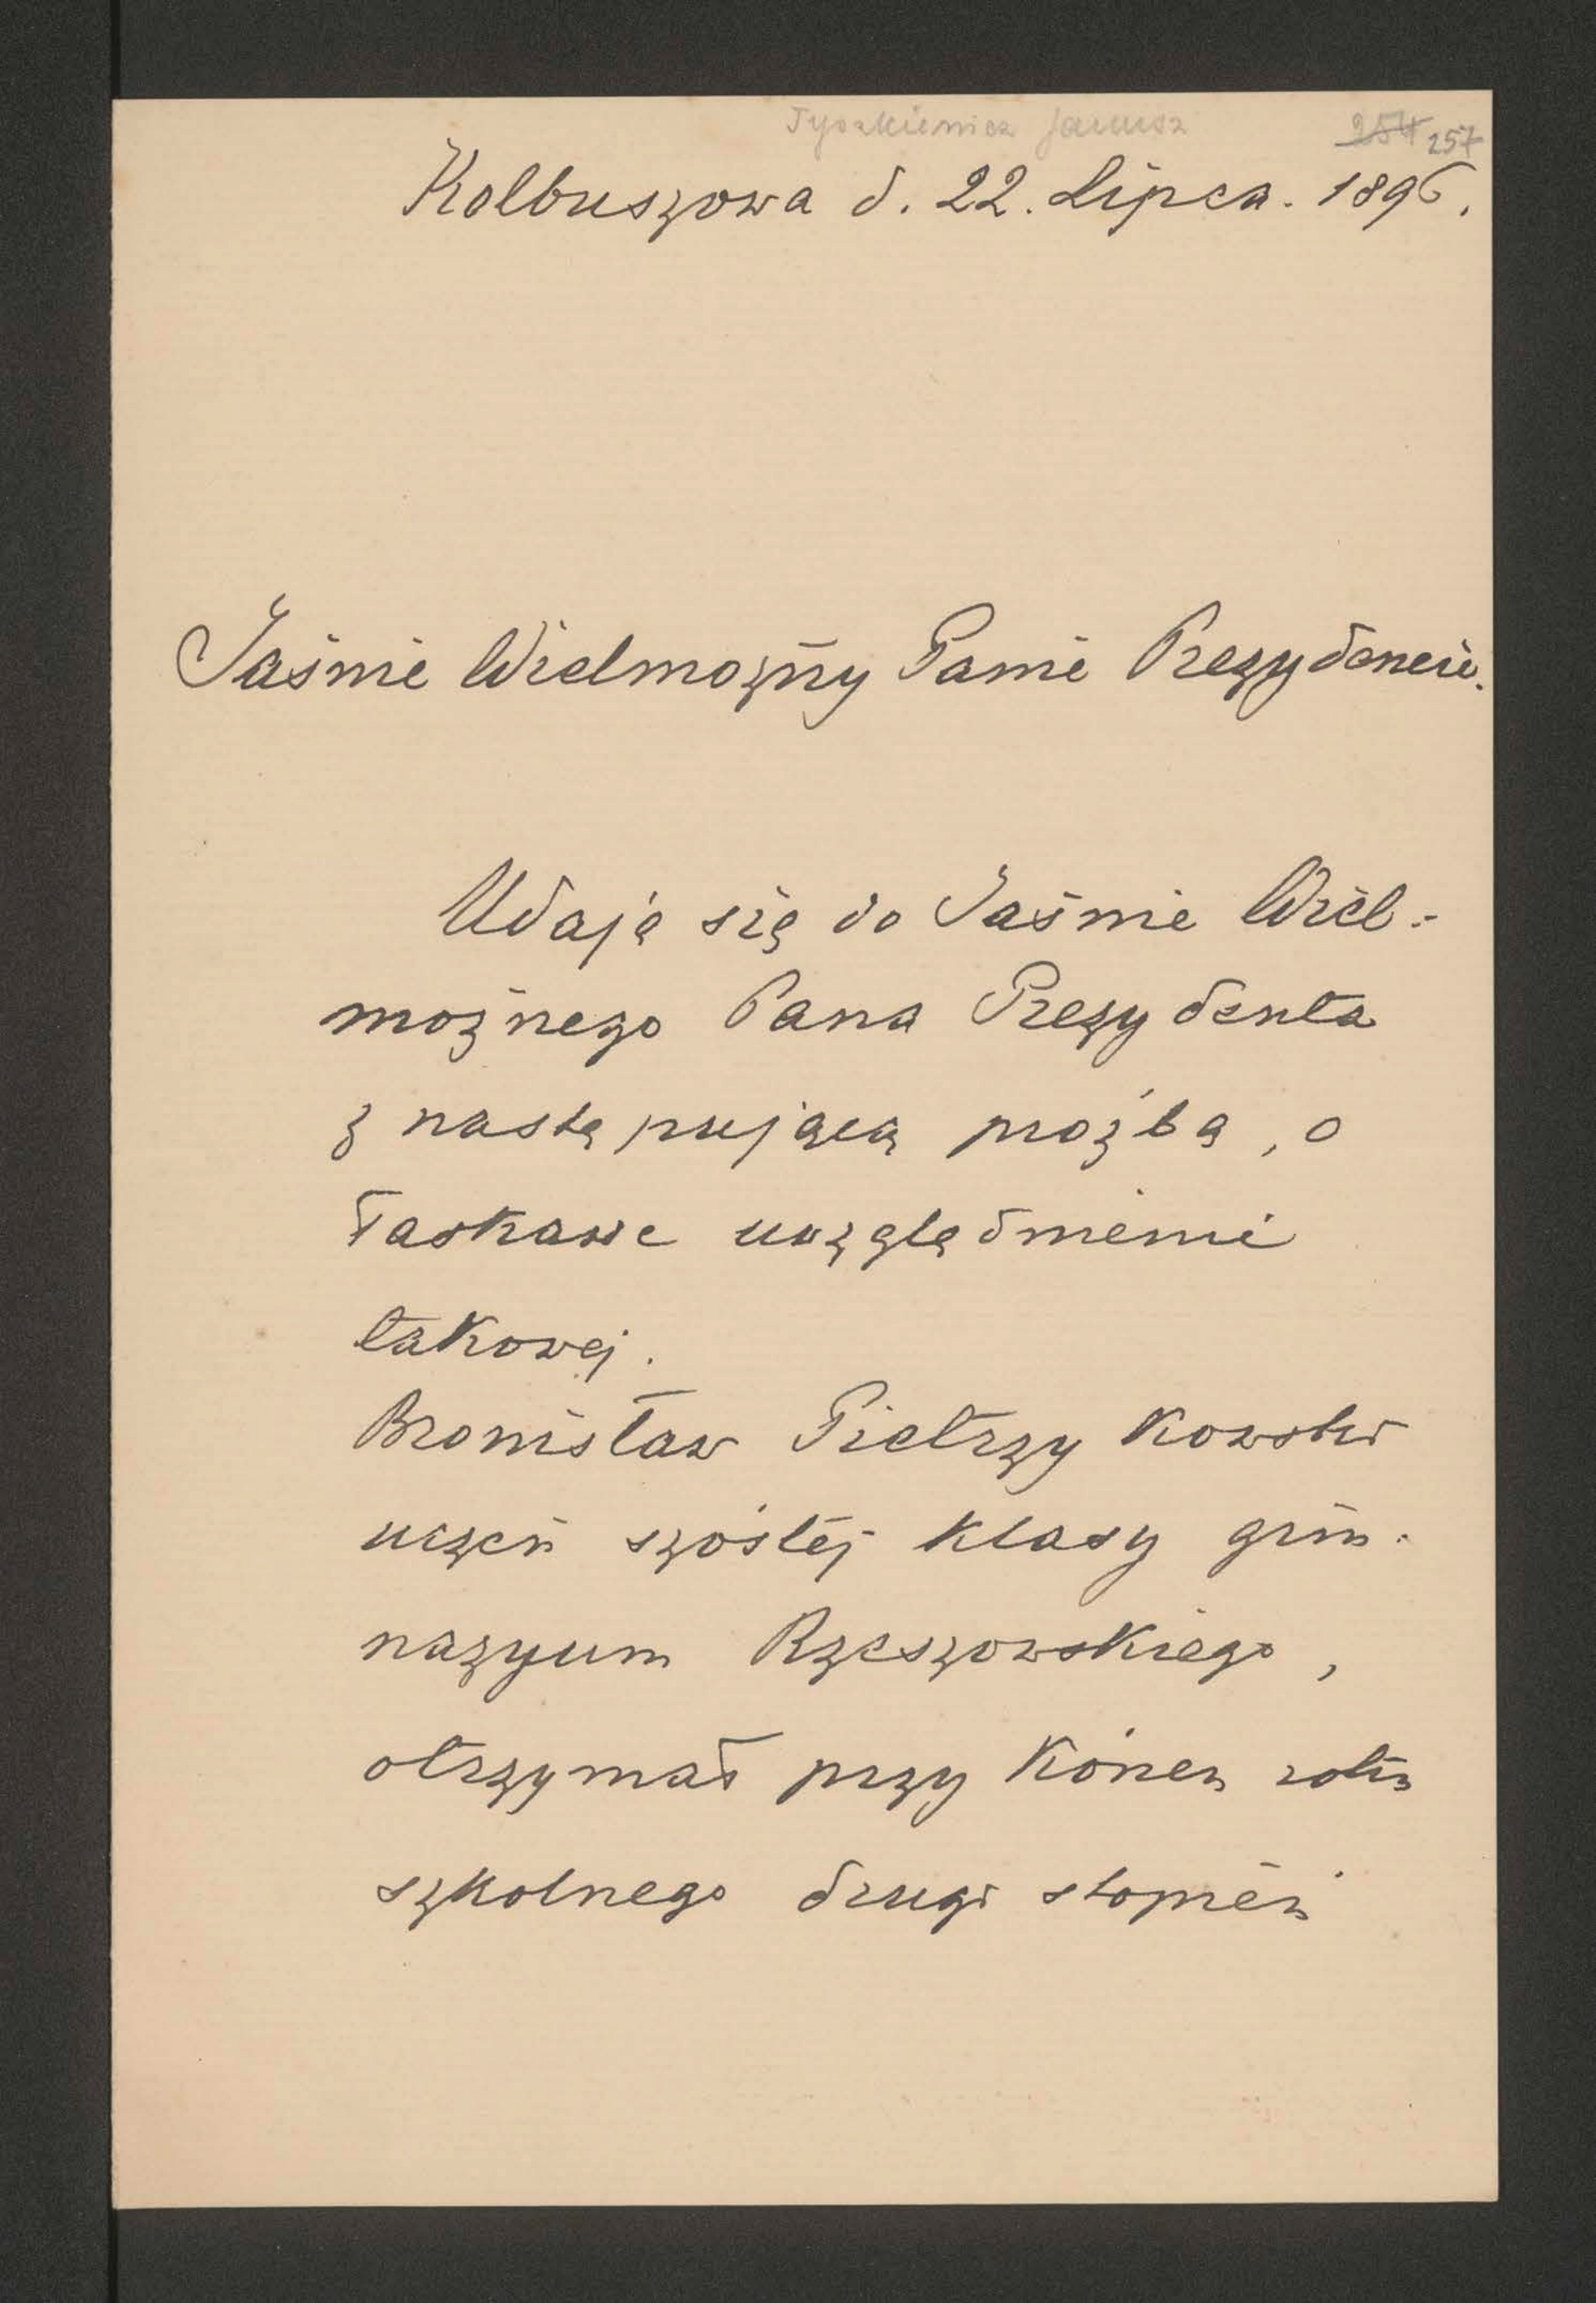 Tyszkiewicz Janusz
254 257
Kolbuszowa d. 22. Lipca. 1896.
Jaśnie Wielmożny Panie Prezydencie.
Udaję się do Jaśnie Wiel-
możnego Pana Prezydenta
z następującą proźbą, o
łaskawe uwzględnienie
takowej.
Bronisław Pietrzykowski
uczeń szóstéj klasy gim-
nazyum Rzeszowskiego,
otrzymał przy końcu roku
szkolnego drugi stopień